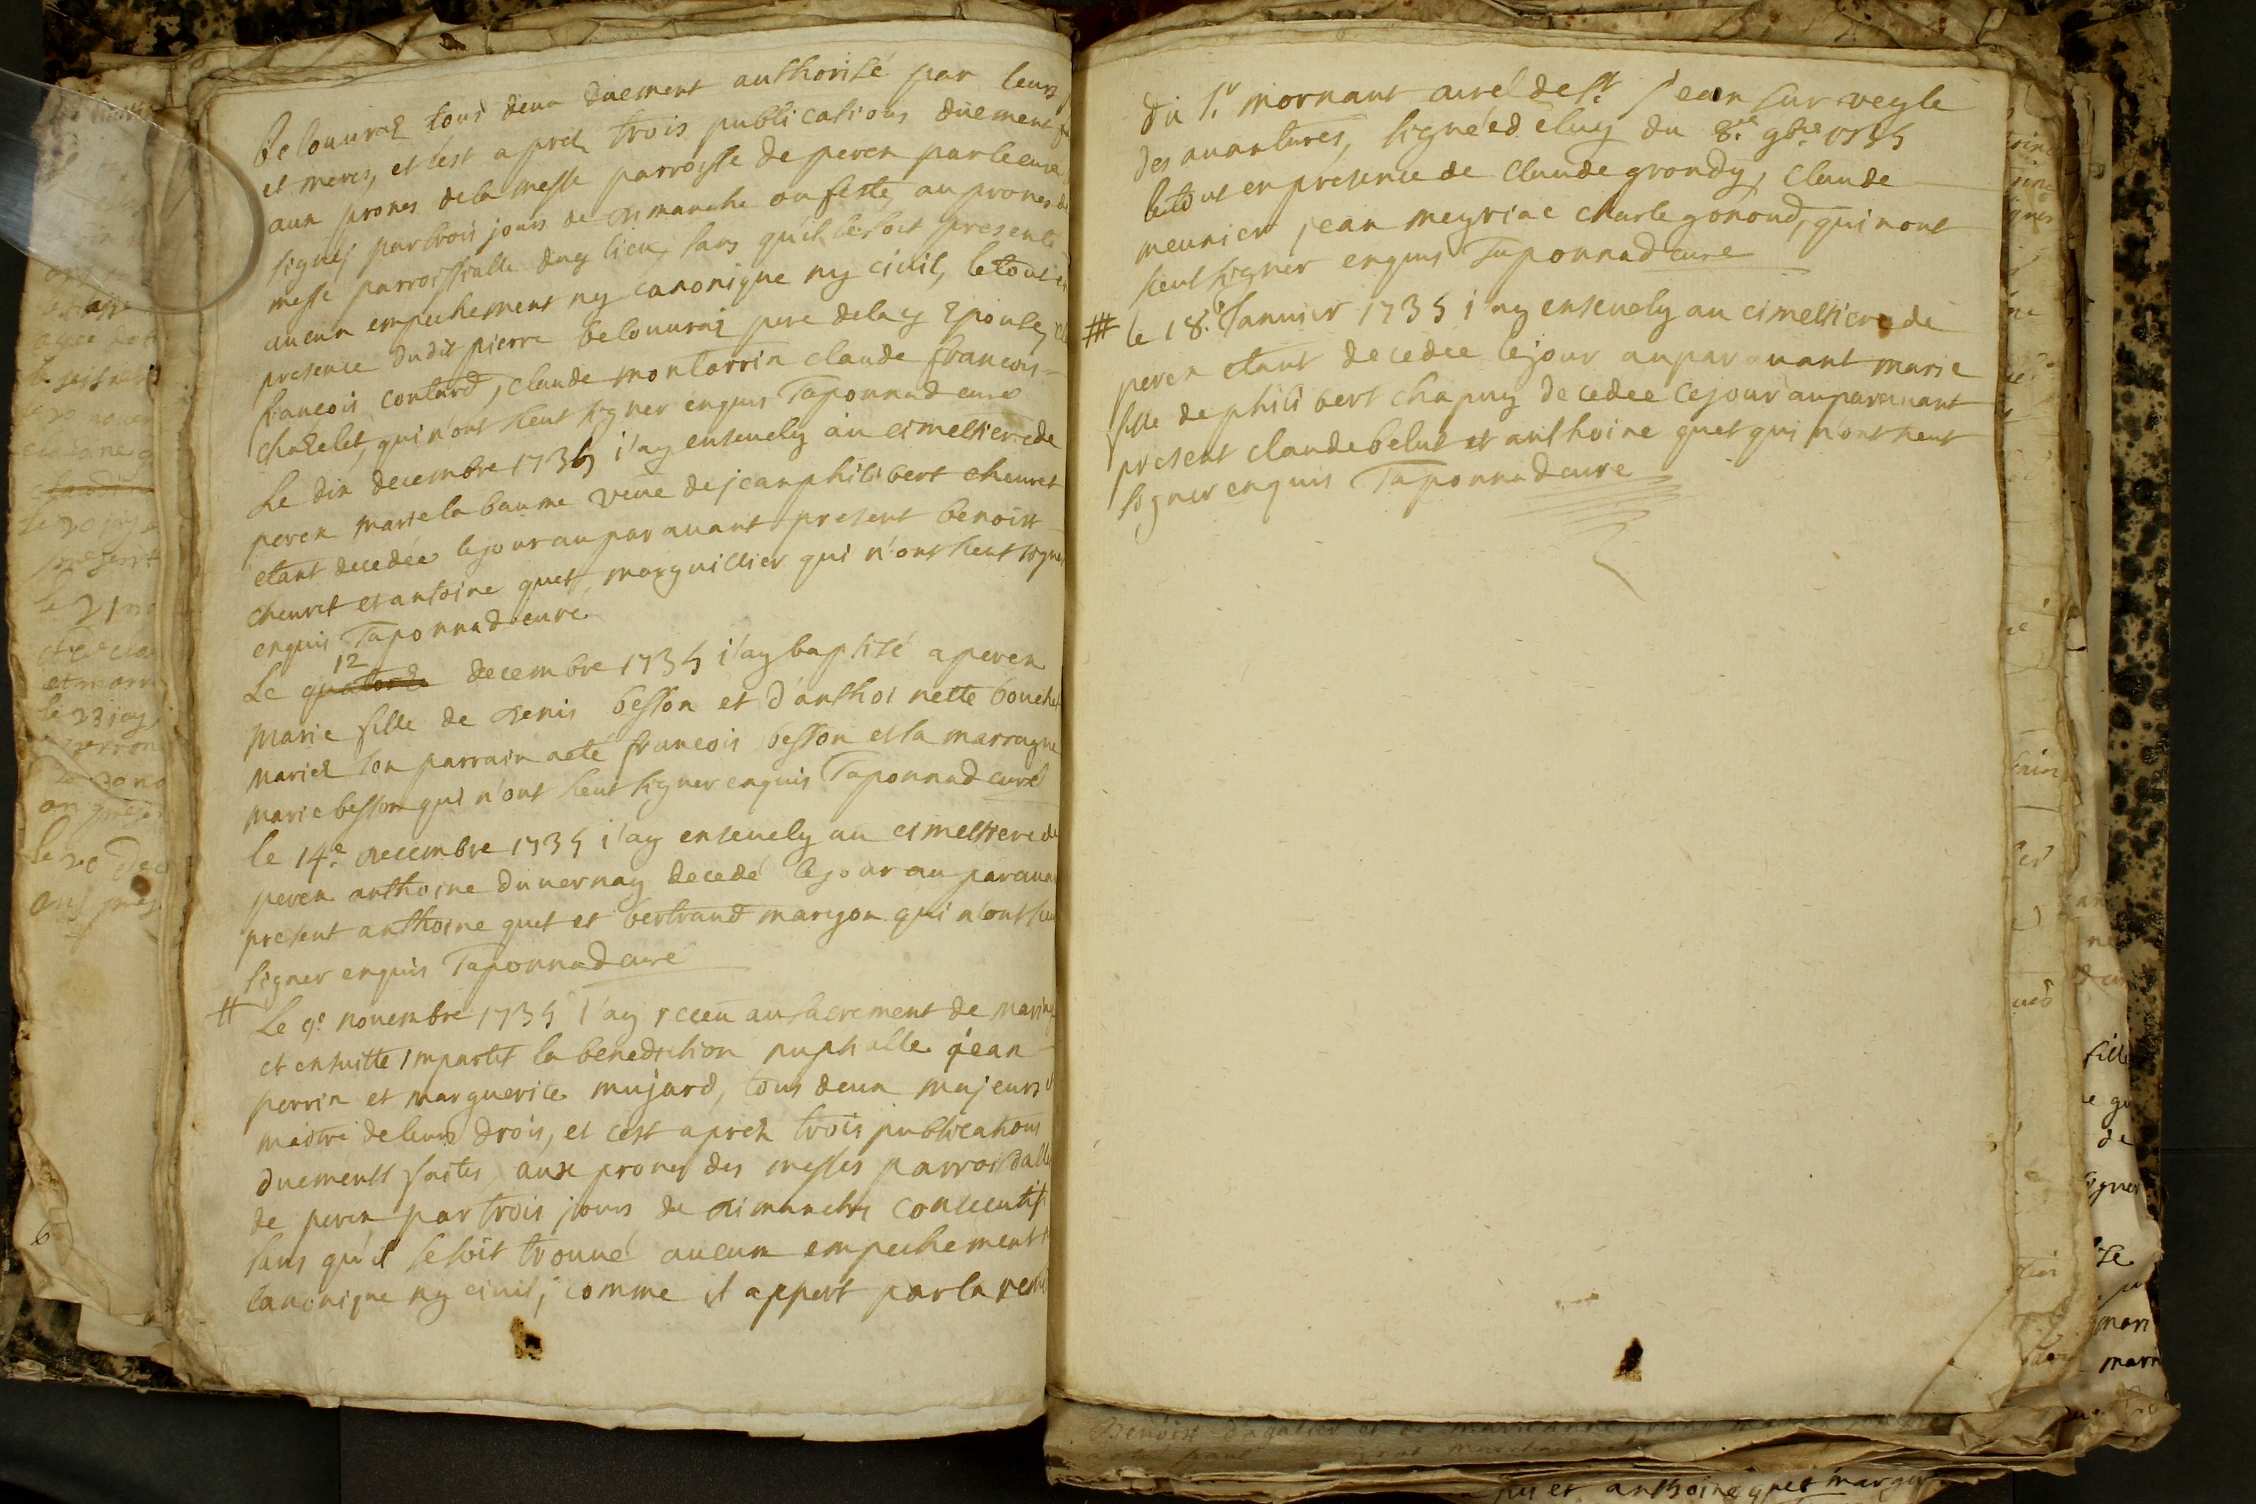 belouuraz tous deux duement authorisé par leurs
et meres, et c'est aprez trois publications düement
aux prones de la messe parroisse de perex par le curé
signés par trois jours de dimanche ou feste, au prones
messe parroissialle duy lieu, sans qu'il se soit presenté
aucun empechement ny canonique ny civil, le tout en
presence dudit pierre belouuraz pere de lay Epouse,
francois contard, claude montarrin claude francois
chatelet, qui n'ont sceut signer enquis Taponnad curé
Le dix decembre 1735 i'ay enseuely au cimettiere de
perex marie la baume veüe de jean philibert cheuret
etant decedée le jour auparauant present benoist
cheuret et antoine quet, marguillier qui n'ont sceut signer
enquis Taponnad curé
12
Le quatorze decembre 1735 i'ay baptisé a perex
Marie fille de denis besson et d'anthoinette bouchet
mariez son parrain aeté francois besson et la marragne
marie besson qui n'ont sceut signer enquis Taponnad curé
le 14e decembre 1735 i'ay enseuely au cimettiere de
perex anthoine duuernay decedé le jour auparauant
present anthoine quet et bertrand maryon qui n'ont sceu
signer enquis Taponnad curé
# Le 9e nouembre 1735 i'ay receu au sacrement de mariage
et ensuitte impartit la benediction nuptialle jean
perrin et marguerite mujard, tous deux majeurs et
maitre de leurs drois, et cest aprez trois publications
duements faites aux prones des messes parroissialle
de perex par trois jours de dimanches consecutif
sans qu'il se soit trouué aucun empechement
canonique ny ciuil, comme il appert par la remise
du Sr. mornant curé de St. jean sur veyle
des auantures, signée d'eluy du 8e 9bre 1735
le tout en presence de Claude grondy, Claude
meunier jean meyriac charle gonoud, qui n'ont
sceut signer enquis Taponnad curé
# le 18e Januier 1735 i'ay enseuely au cimettiere de
perex etant decedée le jour auparauant marie
fille de philibert chapuy decedee ce jour auparauant
present claude belut et anthoine quet qui n'ont sceut
signer enquis Taponnad curé